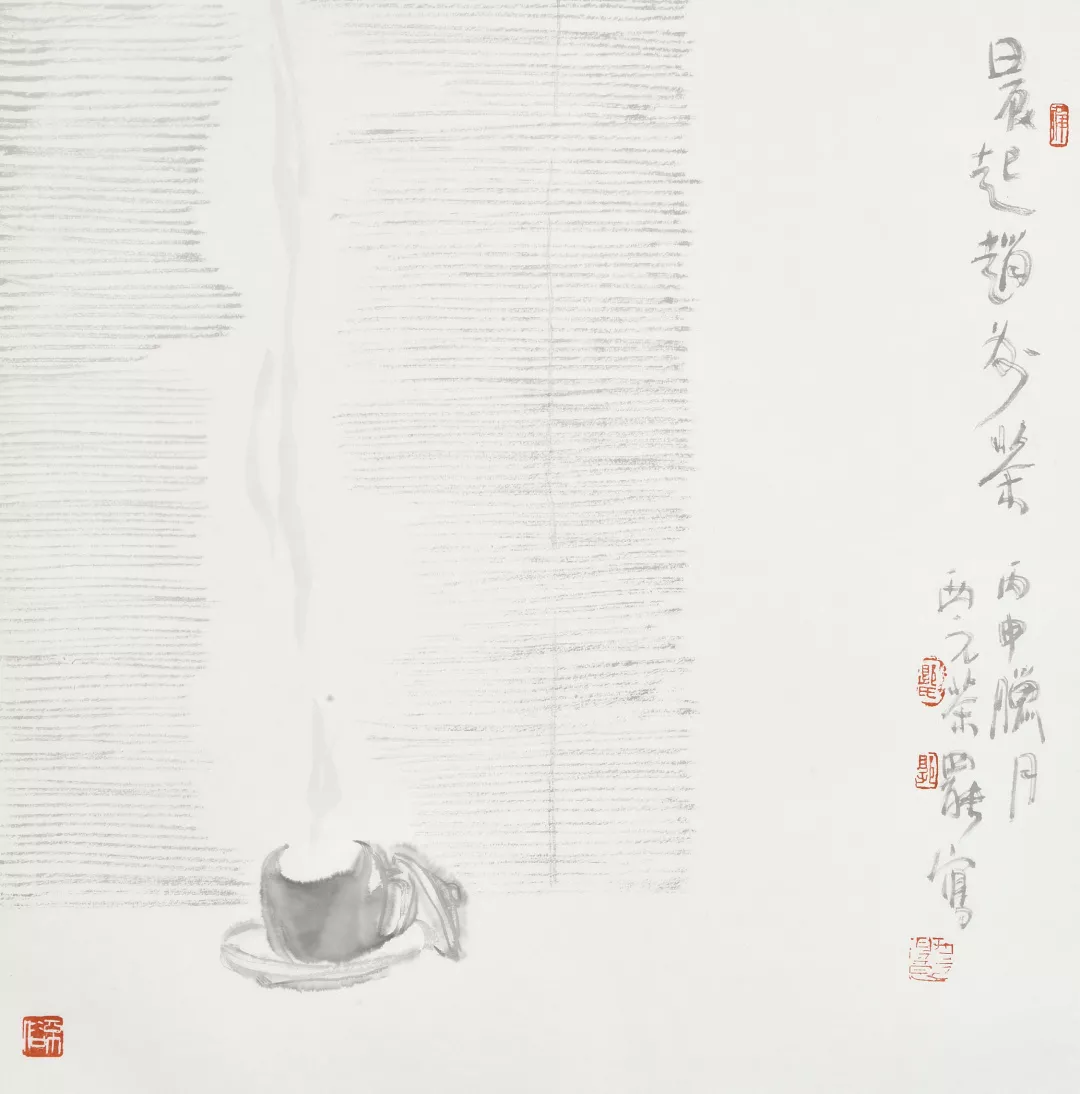 晨起趙州茶
丙申臘月
西元茶罷寫